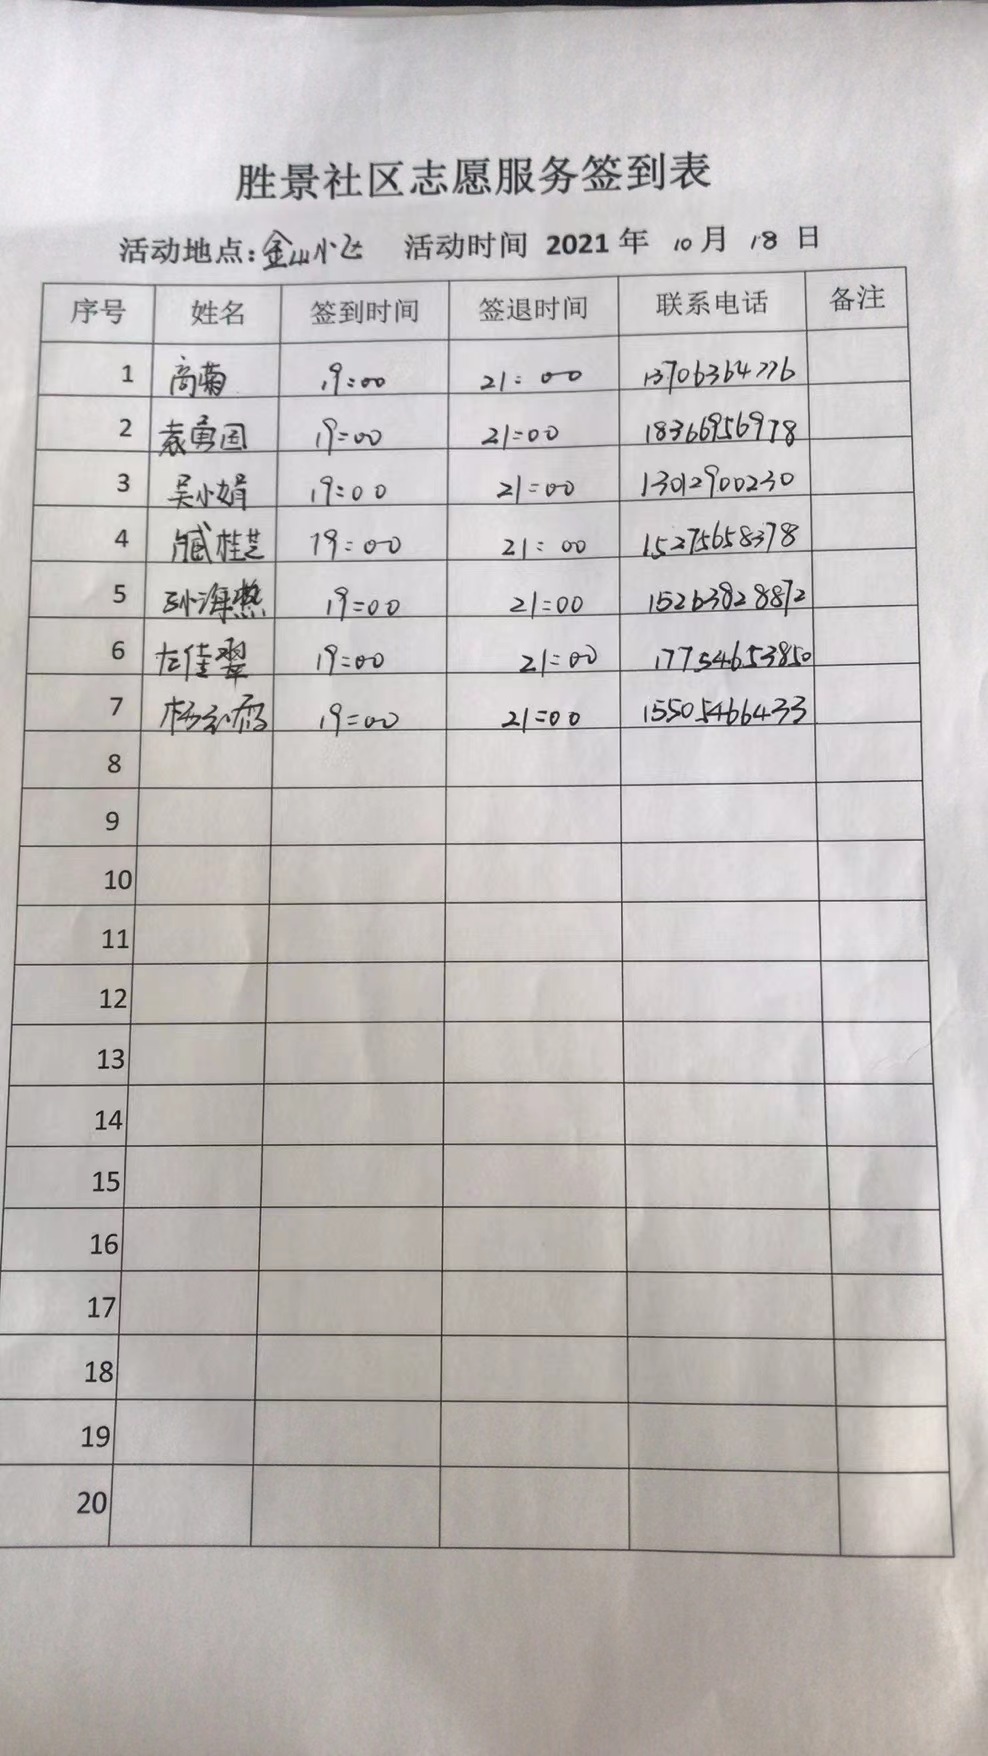 胜景社区志愿服务签到表
活动地点:金山小区 活动时间 2021 年 10 月 18 日
序号 姓名 签到时间 签退时间 联系电话 备注
1 高菊 19:00 21:00 13706364776
2 袁勇国 19:00 21:00 18366956978
3 吴小娟 19:00 21:00 13012900230
4 臧桂芝 19:00 21:00 15275658378
5 孙海燕 19:00 21:00 15263828872
6 左佳翠 19:00 21:00 17754653850
7 杨 19:00 21:00 15505466433
8
9
10
11
12
13
14
15
16
17
18
19
20